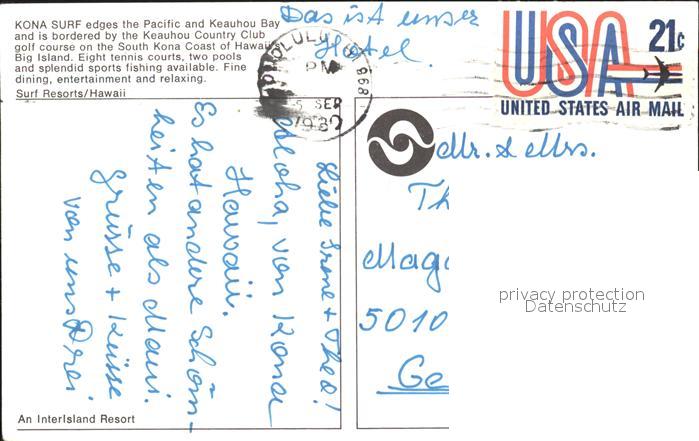 KONA SURF edges the Pacific and Keauhou Bay
and is bordered by the Keauhou Country Club
golf course on the South Kona Coast of Hawaii's
Big Island. Eight tennis courts, two pools
and splendid sports fishing available. Fine
dining, entertainment and relaxing.
Surf Resorts/Hawaii
Das ist unser
Hotel.
HONOLULU
PM
5 SEP
968
USA 21c
UNITED STATES AIR MAIL
Liebe Irene + Theo!
Aloha, von Kona
Hawaii.
Es hat andere Schön-
heiten als Maui.
Grüsse + Küsse
von uns Drei
An InterIsland Resort
Mr. & Mrs.
Th
Mag
5010
Ge
privacy protection
Datenschutz